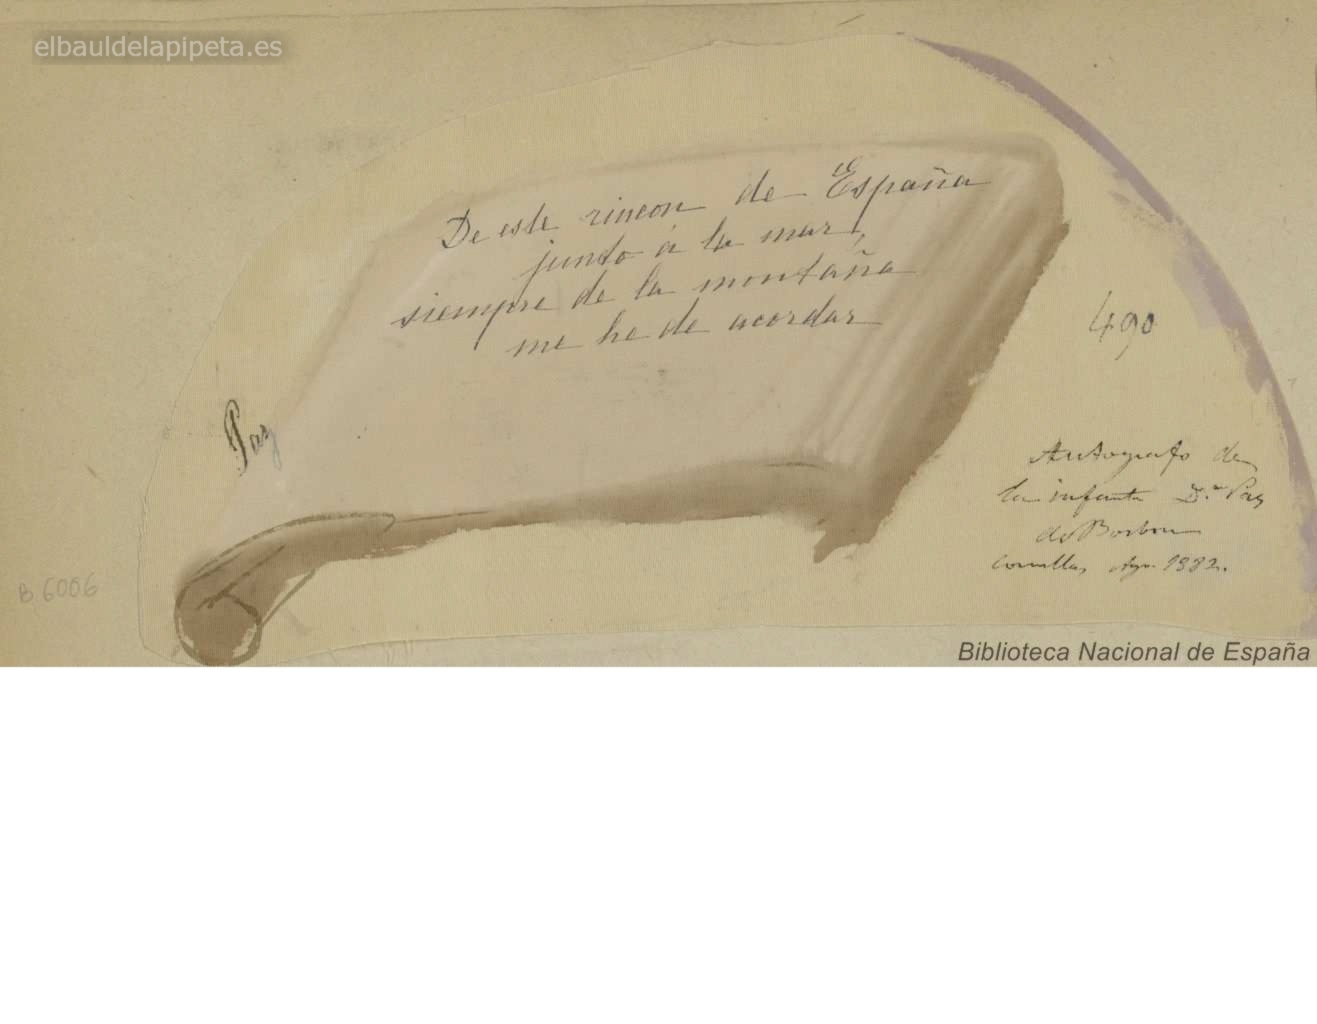 elbauldelapipeta.es
De este rincon de España
junto á la mar,
siempre de la montaña
me he de acordar
Paz
490
Autografo de
la infanta D.ª Paz
de Borbon
Comillas, Agº 1882.
B 6006
Biblioteca Nacional de España